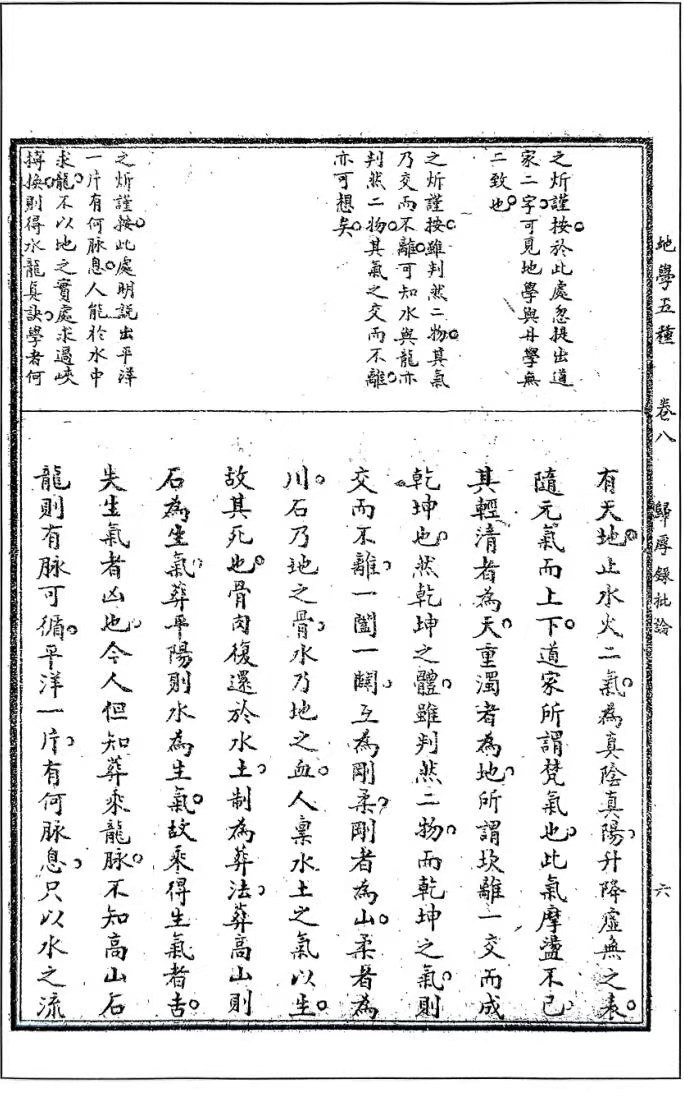 地學五種 卷八 歸厚錄批論 六
之炘謹按於此處忽提出道
家二字可見地學與丹學無
二致也
之炘謹按雖判然二物其氣
乃交而不離可知水與龍亦
判然二物其氣之交而不離
亦可想矣
之炘謹按此處明説出平洋
一片有何脉息人能於水中
求龍不以地之實處求過峽
摶換則得水龍真訣學者何
有天地止水火二氣為真陰真陽升降虛無之表
隨元氣而上下道家所謂梵氣也此氣摩盪不已
其輕清者為天重濁者為地所謂坎離一交而成
乾坤也然乾坤之體雖判然二物而乾坤之氣則
交而不離一闔一闢互為剛柔剛者為山柔者為
川石乃地之骨水乃地之血人稟水土之氣以生
故其死也骨肉復還於水土制為葬法葬高山則
石為生氣葬平陽則水為生氣故乘得生氣者吉
失生氣者凶也今人但知葬乘龍脉不知高山石
龍則有脉可循平洋一片有何脉息只以水之流